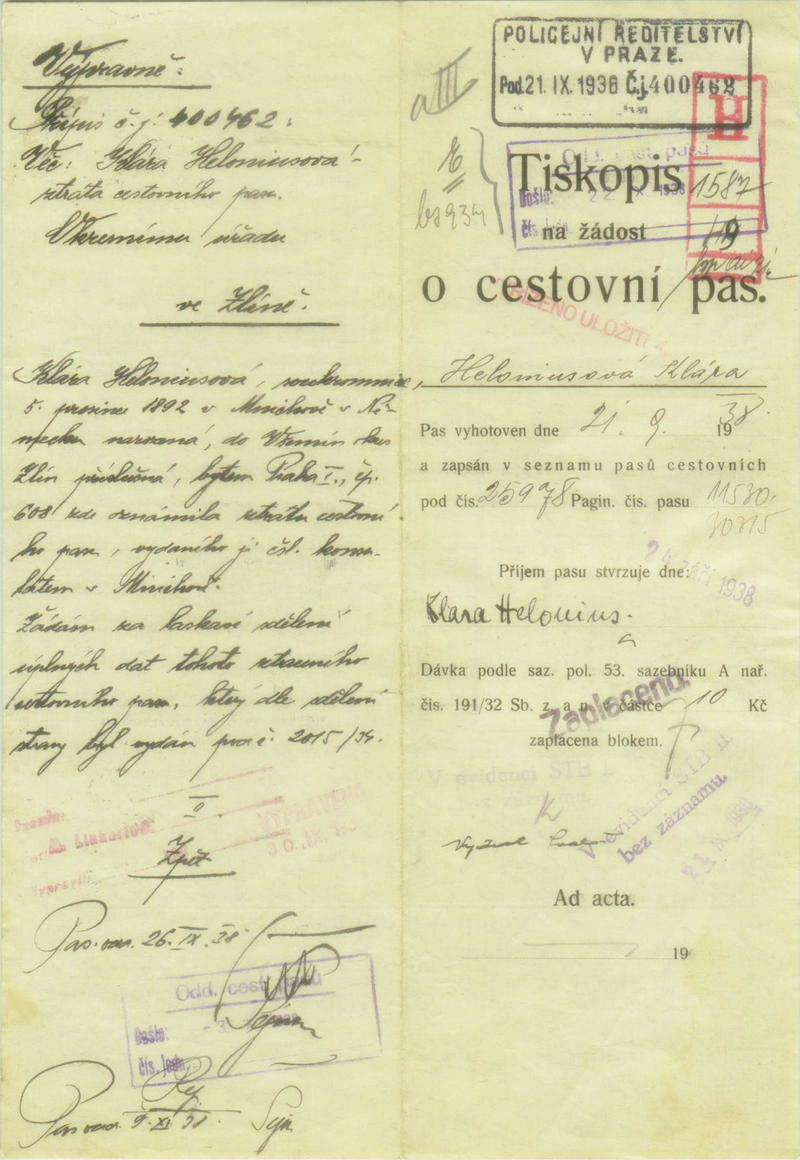 Výpravně:
Přípis č. j: 400462:
Věc: Klára Heloniusová -
ztráta cestovního pasu.
Okresnímu úřadu
ve Zlíně.
Klára Heloniusová, soukromnice,
5. prosince 1892 v Mnichově v Ně-
mecku narozená, do Všemin okres
Zlín příslušná, bytem Praha I., čp.
608 zde oznámila ztrátu cestovní-
ho pasu, vydaného jí čsl. konsu-
látem v Mnichově.
Žádám za laskavé sdělení
úplných dat tohoto ztraceného
cestovního pasu, který dle sdělení
strany byl vydán pod č. 2015/34.
II.
Zpět
VYPRAVENO
30. IX.
Pas. odd. 26. IX. 38
Odd. cest. pasů
Došlo:
čís. jedn.
Pas. odd. 9. XI 38
POLICEJNÍ ŘEDITELSTVÍ
V PRAZE.
Pod. 21. IX. 1938 Č.j. 400462
a III
H
Odd. cest. pasů
Tiskopis
Došlo: 22. IX. 1938
1587
čís. jedn.
na žádost
19
o cestovní pas.
ŘÍZENO ULOŽITI
Heloniusová Klára
Pas vyhotoven dne 21. 9. 1938.
a zapsán v seznamu pasů cestovních
pod čís. 25978 Pagin. čís. pasu 11530.
30215
24. ZÁŘÍ 1938
Příjem pasu stvrzuje dne:
Klara Helonius.
Dávka podle saz. pol. 53. sazebníku A nař.
čís. 191/32 Sb. z. a n. v částce 10 Kč
Zaplaceno.
zaplacena blokem.
V evidenci STB I
V evidenci STB II
bez záznamu.
Ad acta.
19